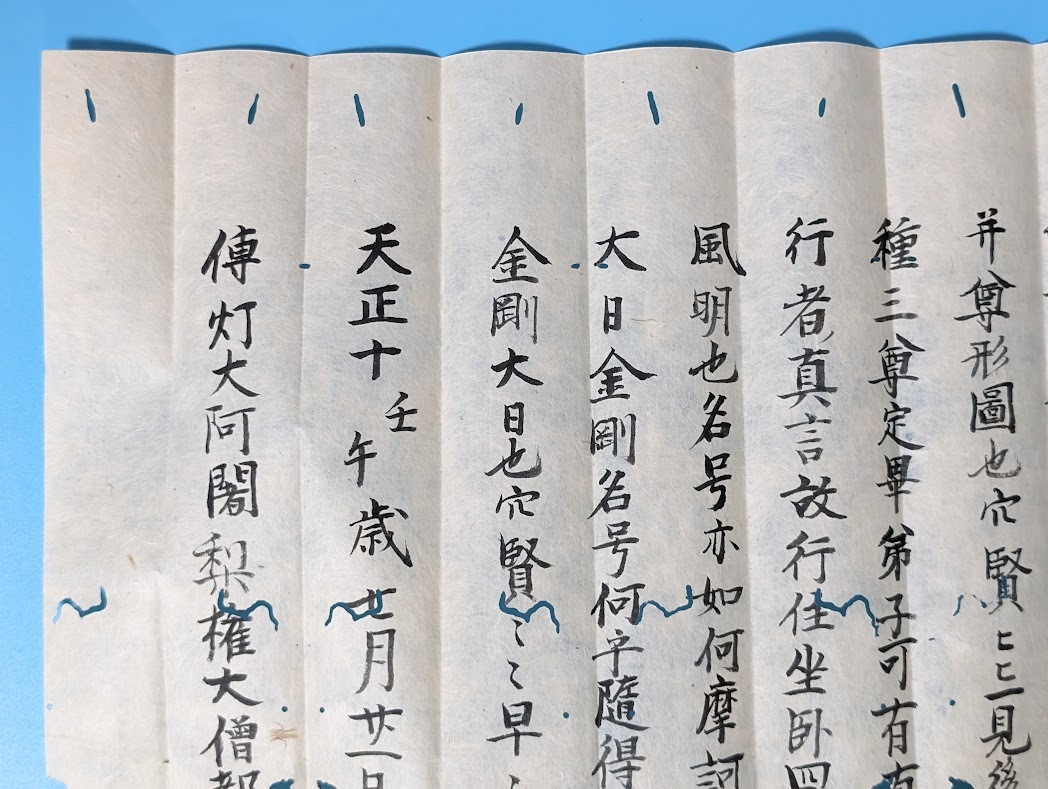 并尊形圖也穴賢〻〻一見後
種三尊定畢弟子可有
行者真言故行住坐卧四
風明也名号亦如何摩訶
大日金剛名号何乎隨得
金剛大日也穴賢〻〻早〻
天正十壬午歳七月廿一日
傳灯大阿闍梨權大僧都